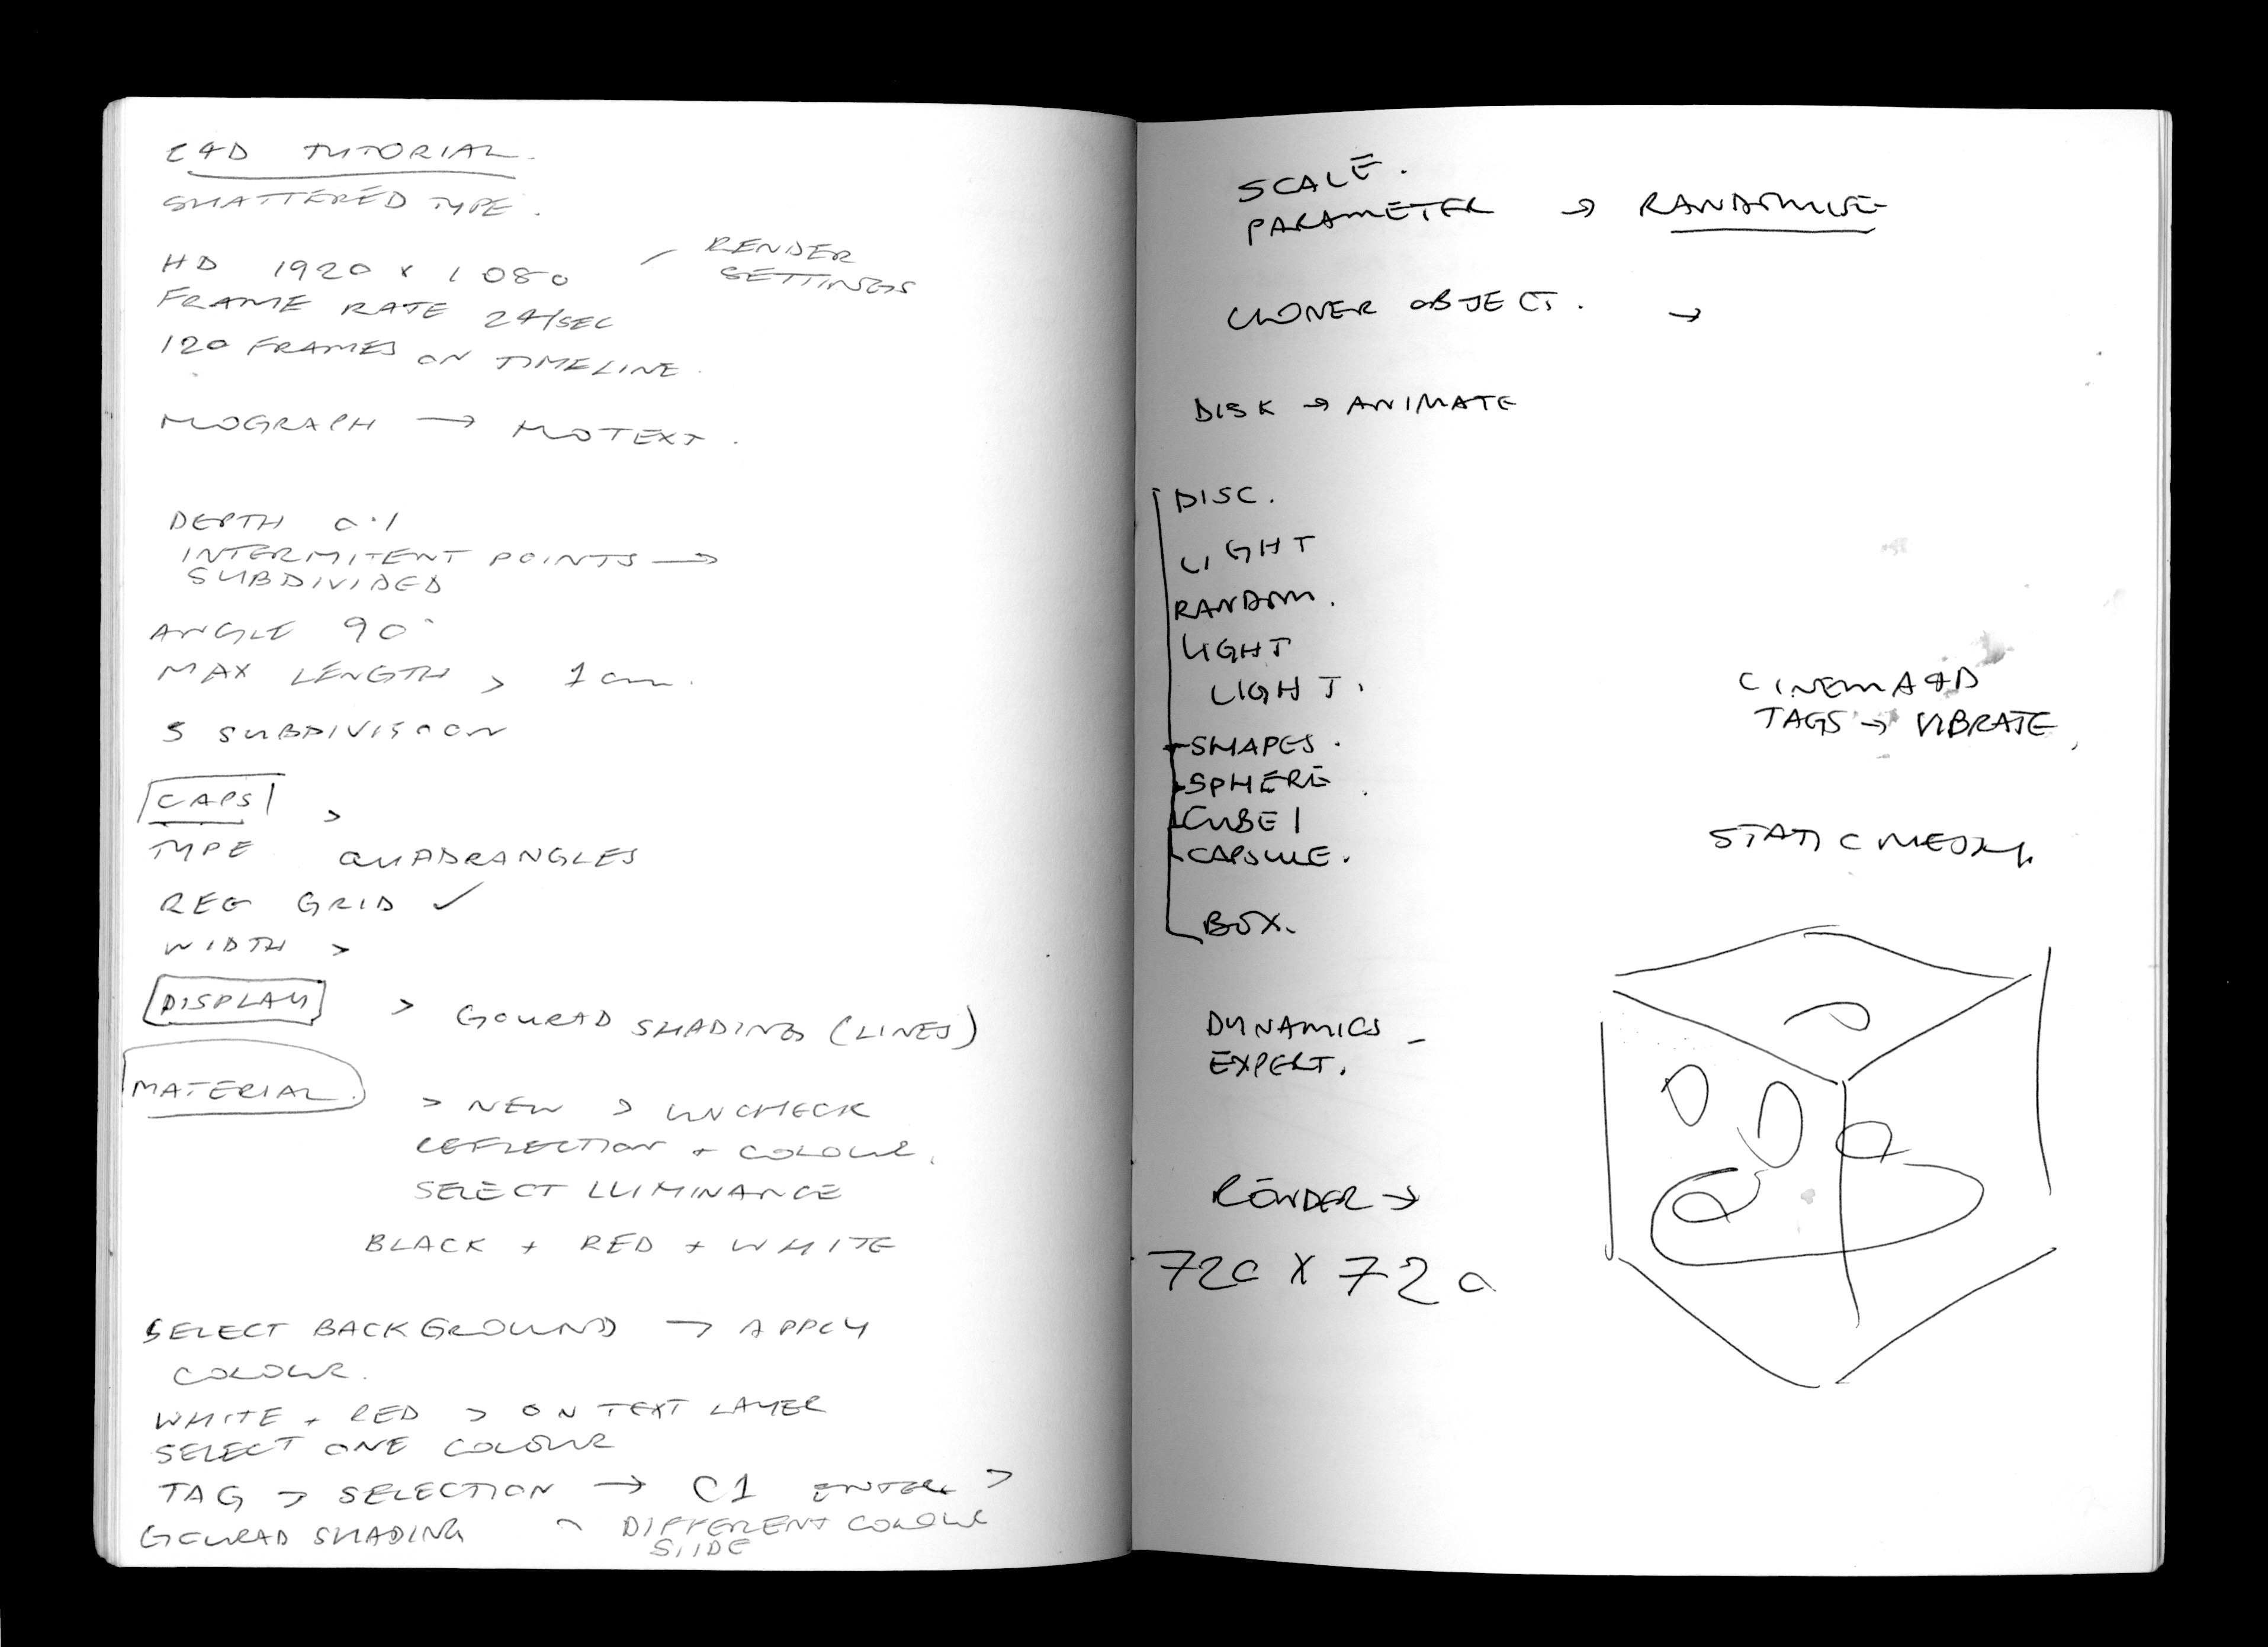 C4D TUTORIAL.
SHATTERED TYPE.
HD 1920 x 1080 / RENDER SETTINGS
FRAME RATE 24/SEC
120 FRAMES ON TIMELINE.
MOGRAPH → MOTEXT.
DEPTH 0.1
INTERMITENT POINTS →
SUBDIVIDED
ANGLE 90°
MAX LENGTH > 1cm.
5 SUBDIVISOON
CAPS >
TYPE QUADRANGLES
REG GRID ✓
WIDTH >
DISPLAY > GOURAD SHADING (LINES)
MATERIAL.
> NEW > UNCHECK
REFLECTION + COLOUR.
SELECT LUIMINANCE
BLACK + RED + WHITE
SELECT BACKGROUND → APPLY
COLOUR.
WHITE + RED > ON TEXT LAYER
SELECT ONE COLOUR
TAG > SELECTION → C1 ENTER >
GOURAD SHADING ~ DIFFERENT COLOUR
SIIDE
SCALE.
PARAMETER → RANDOMISE
CLONER OBJECT. →
DISK → ANIMATE
DISC.
LIGHT
RANDOM.
LIGHT
LIGHT.
SHAPES.
SPHERE
CUBE 1
CAPSULE.
BOX.
CINEMA 4D
TAGS → VIBRATE
DYNAMICS -
EXPERT.
RENDER →
720 x 720